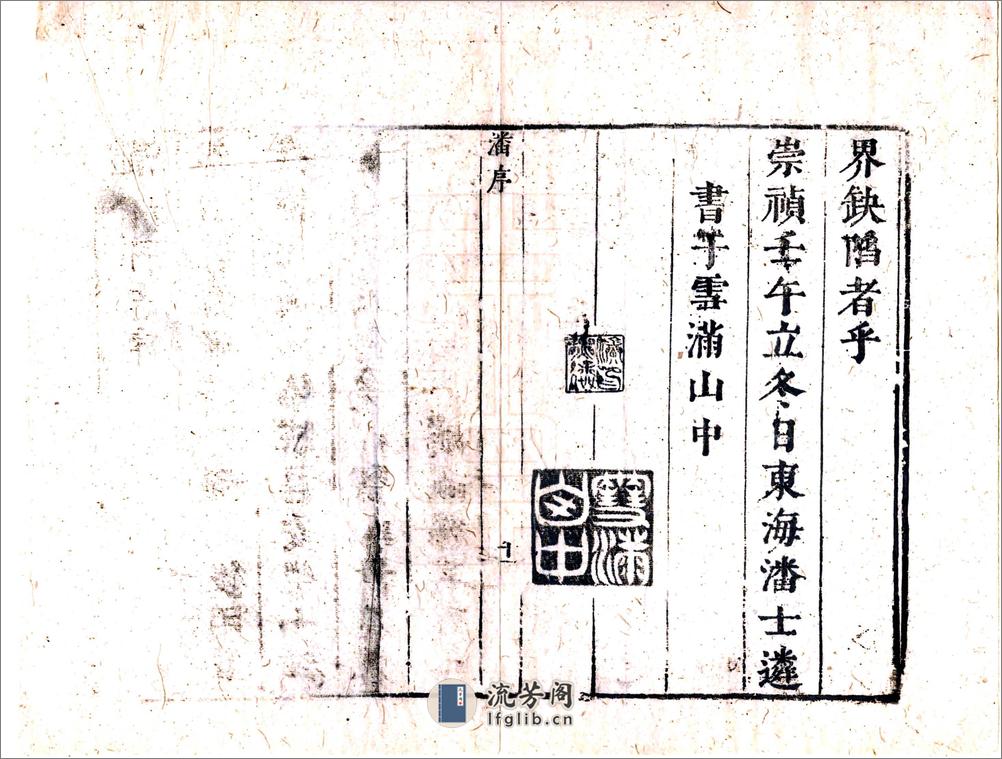 界缺陷者乎
崇禎壬午立冬日東海潘士遴
書于雲滿山中
潘序
流芳阁
lfglib.cn